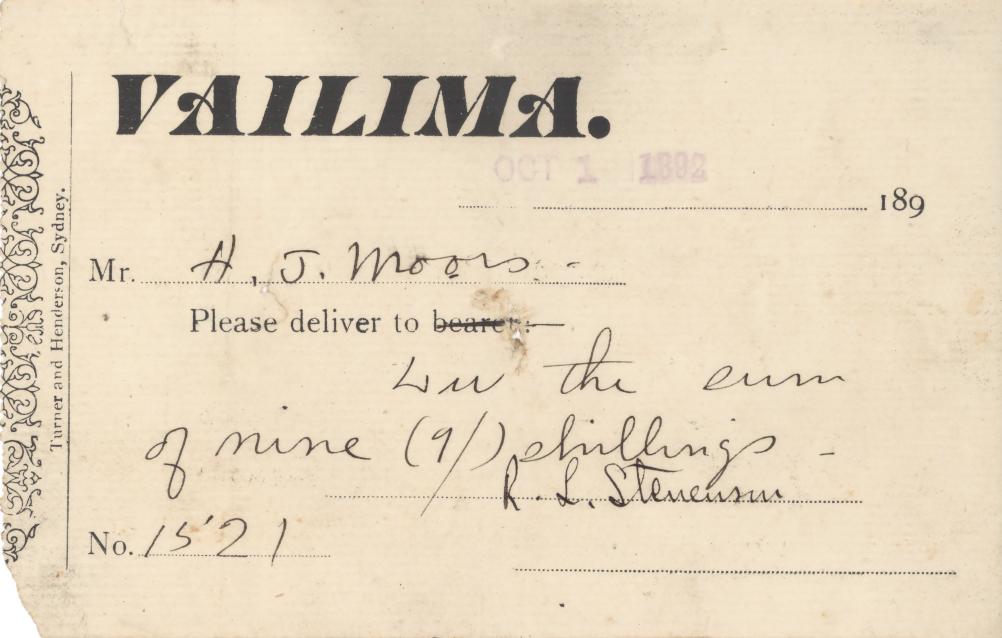 VAILIMA.
OCT 1 1892
189
Mr. H. J. Moors
Please deliver to bearer:
the sum
of nine (9/) shillings
R. L. Stevenson
No. 1521
Turner and Henderson, Sydney.